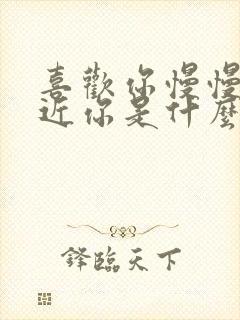 喜歡你慢慢
近你是什麼
鋒臨天下